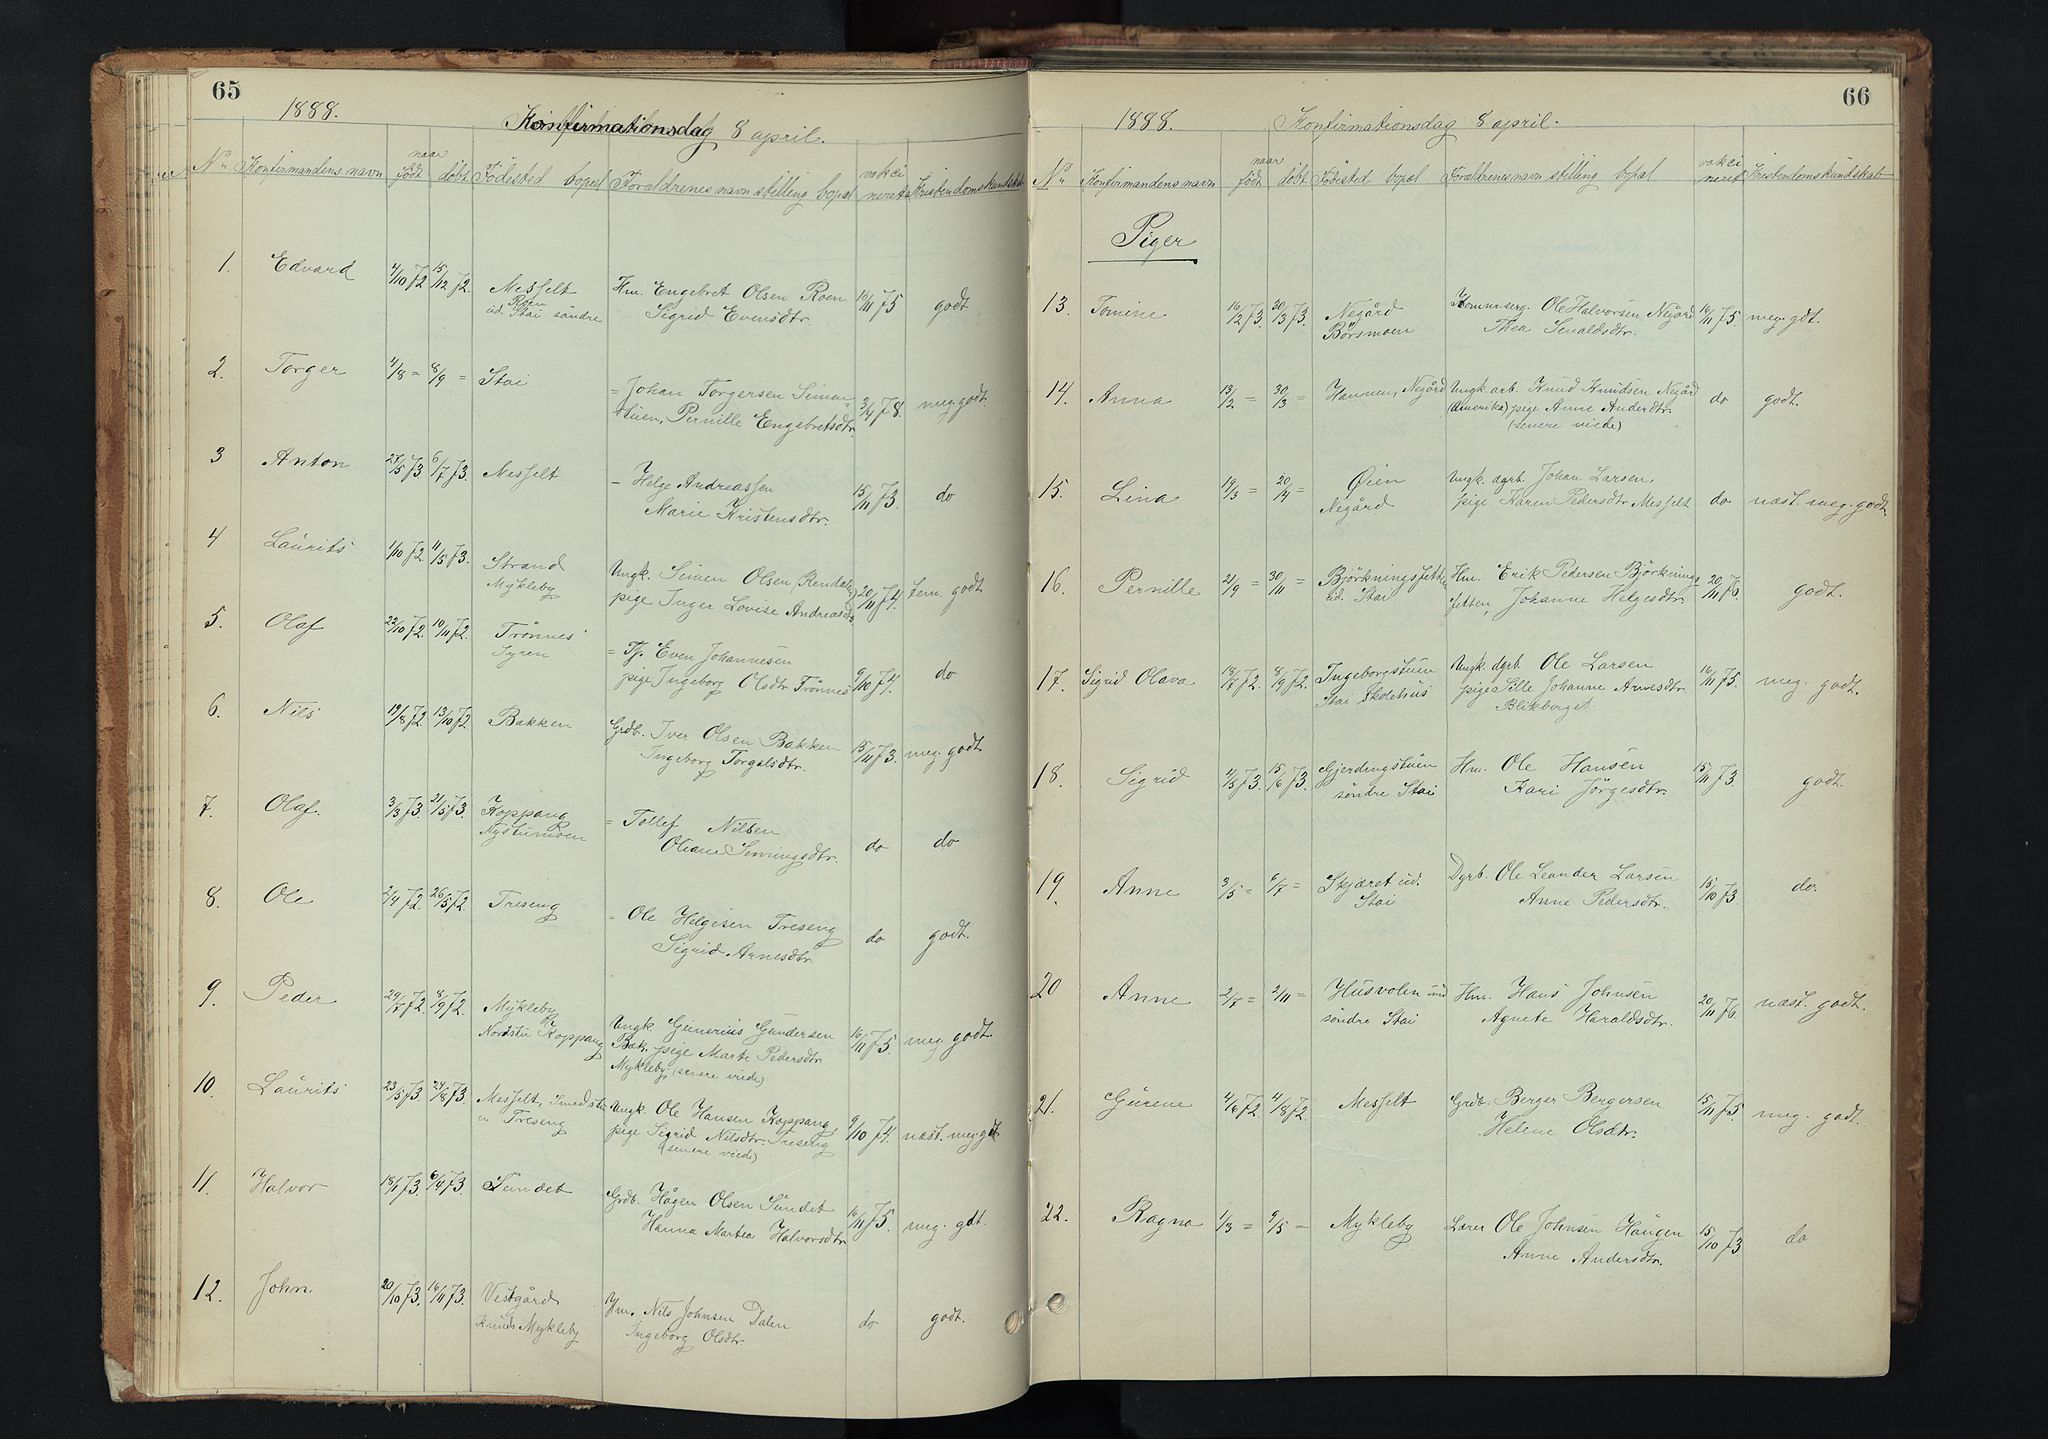 65
1888.
Konfirmationsdag 8 april.
No Konfirmandens navn naar födt döbt Födested bopæl Forældrenes navn stilling bopæl vakcineret Kristendomskundskab
1. Edvard 4/10 72 15/12 72. Messelt Hm. Engebret Olsen Roen 16/11 75 godt
Roen
ud. Stai söndre Sigrid Evensdtr.
2. Torger 4/8 = 8/9 = Stai = Johan Torgersen Simen-
stuen, Pernille Engebretsdtr. 3/4 78. meg. godt.
3 Anton 27/5 73 6/7 73. Messelt - Helge Andreassen
Marie Kristensdtr. 15/11 73. do
4 Laurits 1/10 72. 11/5 73. Strand Ungk. Simen Olsen (Rendalen)
Mykleby pige Inger Lovise Andreasdtr. 20/11 74. tem. godt
5. Olaf 22/10 72. 10/11 72. Trönnes = Tj. Even Johannesen
Fyren pige Ingeborg Olsdtr Trönnes 9/10 74. do
6. Nils 19/8 72 13/10 72. Bakken Grdb. Iver Olsen Bakken
Ingeborg Torgalsdtr. 15/11 73. meg. godt
7. Olaf. 3/3 73. 21/5 73. Koppang = Tollef Nilsen
Nystumoen Oliane Semingsdtr. do do
8. Ole 2/4 72. 26/5 72. Treseng = Ole Helgesen Treseng
Sigrid Arnesdtr. do godt.
9. Peder 29/7 72. 8/9 72. Mykleby
Nordstu Koppang Ungk. Gunerius Gundersen
Bæk. pige Marte Pedersdtr
Mykleby (senere viede) 16/11 75. meg. godt.
10. Laurits 23/5 73. 24/8 73. Messelt, Smedstu
n Treseng Ungk. Ole Hansen Koppang,
pige Sigrid Nilsdtr. Treseng
(senere viede) 9/10 74. næst. meg. gdt.
11. Halvor 18/1 73. 6/4 73. Sundet Grdb. Hågen Olsen Sundet
Hanna Martea Halvorsdtr. 16/11 75. meg. gdt.
12. John 20/10 73. 16/11 73. Vestgård Hm. Nils Johnsen Dalen
Knuds Mykleby Ingeborg Olsdtr. do godt.
66
1888. Konfirmationsdag 8 april.
No Konfirmandens navn naar födt döbt Födested bopæl Forældrenes navn stilling bopæl vakcineret Kristendomskundskab
Piger
13. Tomine 16/2 73. 30/3 73. Negård Kommserg. Ole Halvorsen Negård 16/11 75 meg. gdt.
Börsmoen Thea Senaldsdtr.
14. Anna 13/2 = 30/3 = Hannem, Negård Ungk. arb. Knud Knudsen Negård
(Amerika) pige Anne Andersdtr.
(senere viede) do godt.
15. Lina 19/3 = 20/4 = Öien Ungk. dgrb. Johan Larsen,
Negård pige Karen Pedersdtr. Messelt do næst. meg. godt.
16. Pernille 21/9 30/11 = Björkningssetten Hm. Erik Pedersen Björknings-
ud. Stai setten, Johanne Helgesdtr. 20/11 76. godt.
17. Sigrid Olava 18/7 72. 8/9 72. Ingeborgstuen Ungk. dgrb. Ole Larsen
Stai Skolehus pige Sille Johanne Arnesdtr.
Blikberget 16/11 75. meg. godt.
18. Sigrid 4/5 73. 15/6 73. Gjerdingstuen Hm. Ole Hansen
söndre Stai Kari Jörgesdtr. 15/11 73 godt.
19. Anne 3/5 = 6/7 = Skjæret ud. Dgrb. Ole Leander Larsen
Stai Anne Pedersdtr. 15/10 73. do.
20 Anne 2/7 = 2/11 = Husvolen und Hm. Hans Johnsen
söndre Stai Agnete Haraldsdtr. 20/11 76. næst. godt.
21. Gurene 4/6 72 4/8 72. Messelt Grdb. Berger Bergersen
Helene Olsdtr. 15/11 75. meg. godt.
22. Ragna 1/3 = 9/5 = Mykleby Lærer Ole Johnsen Haugen
Anne Andersdtr. 15/10 73. do